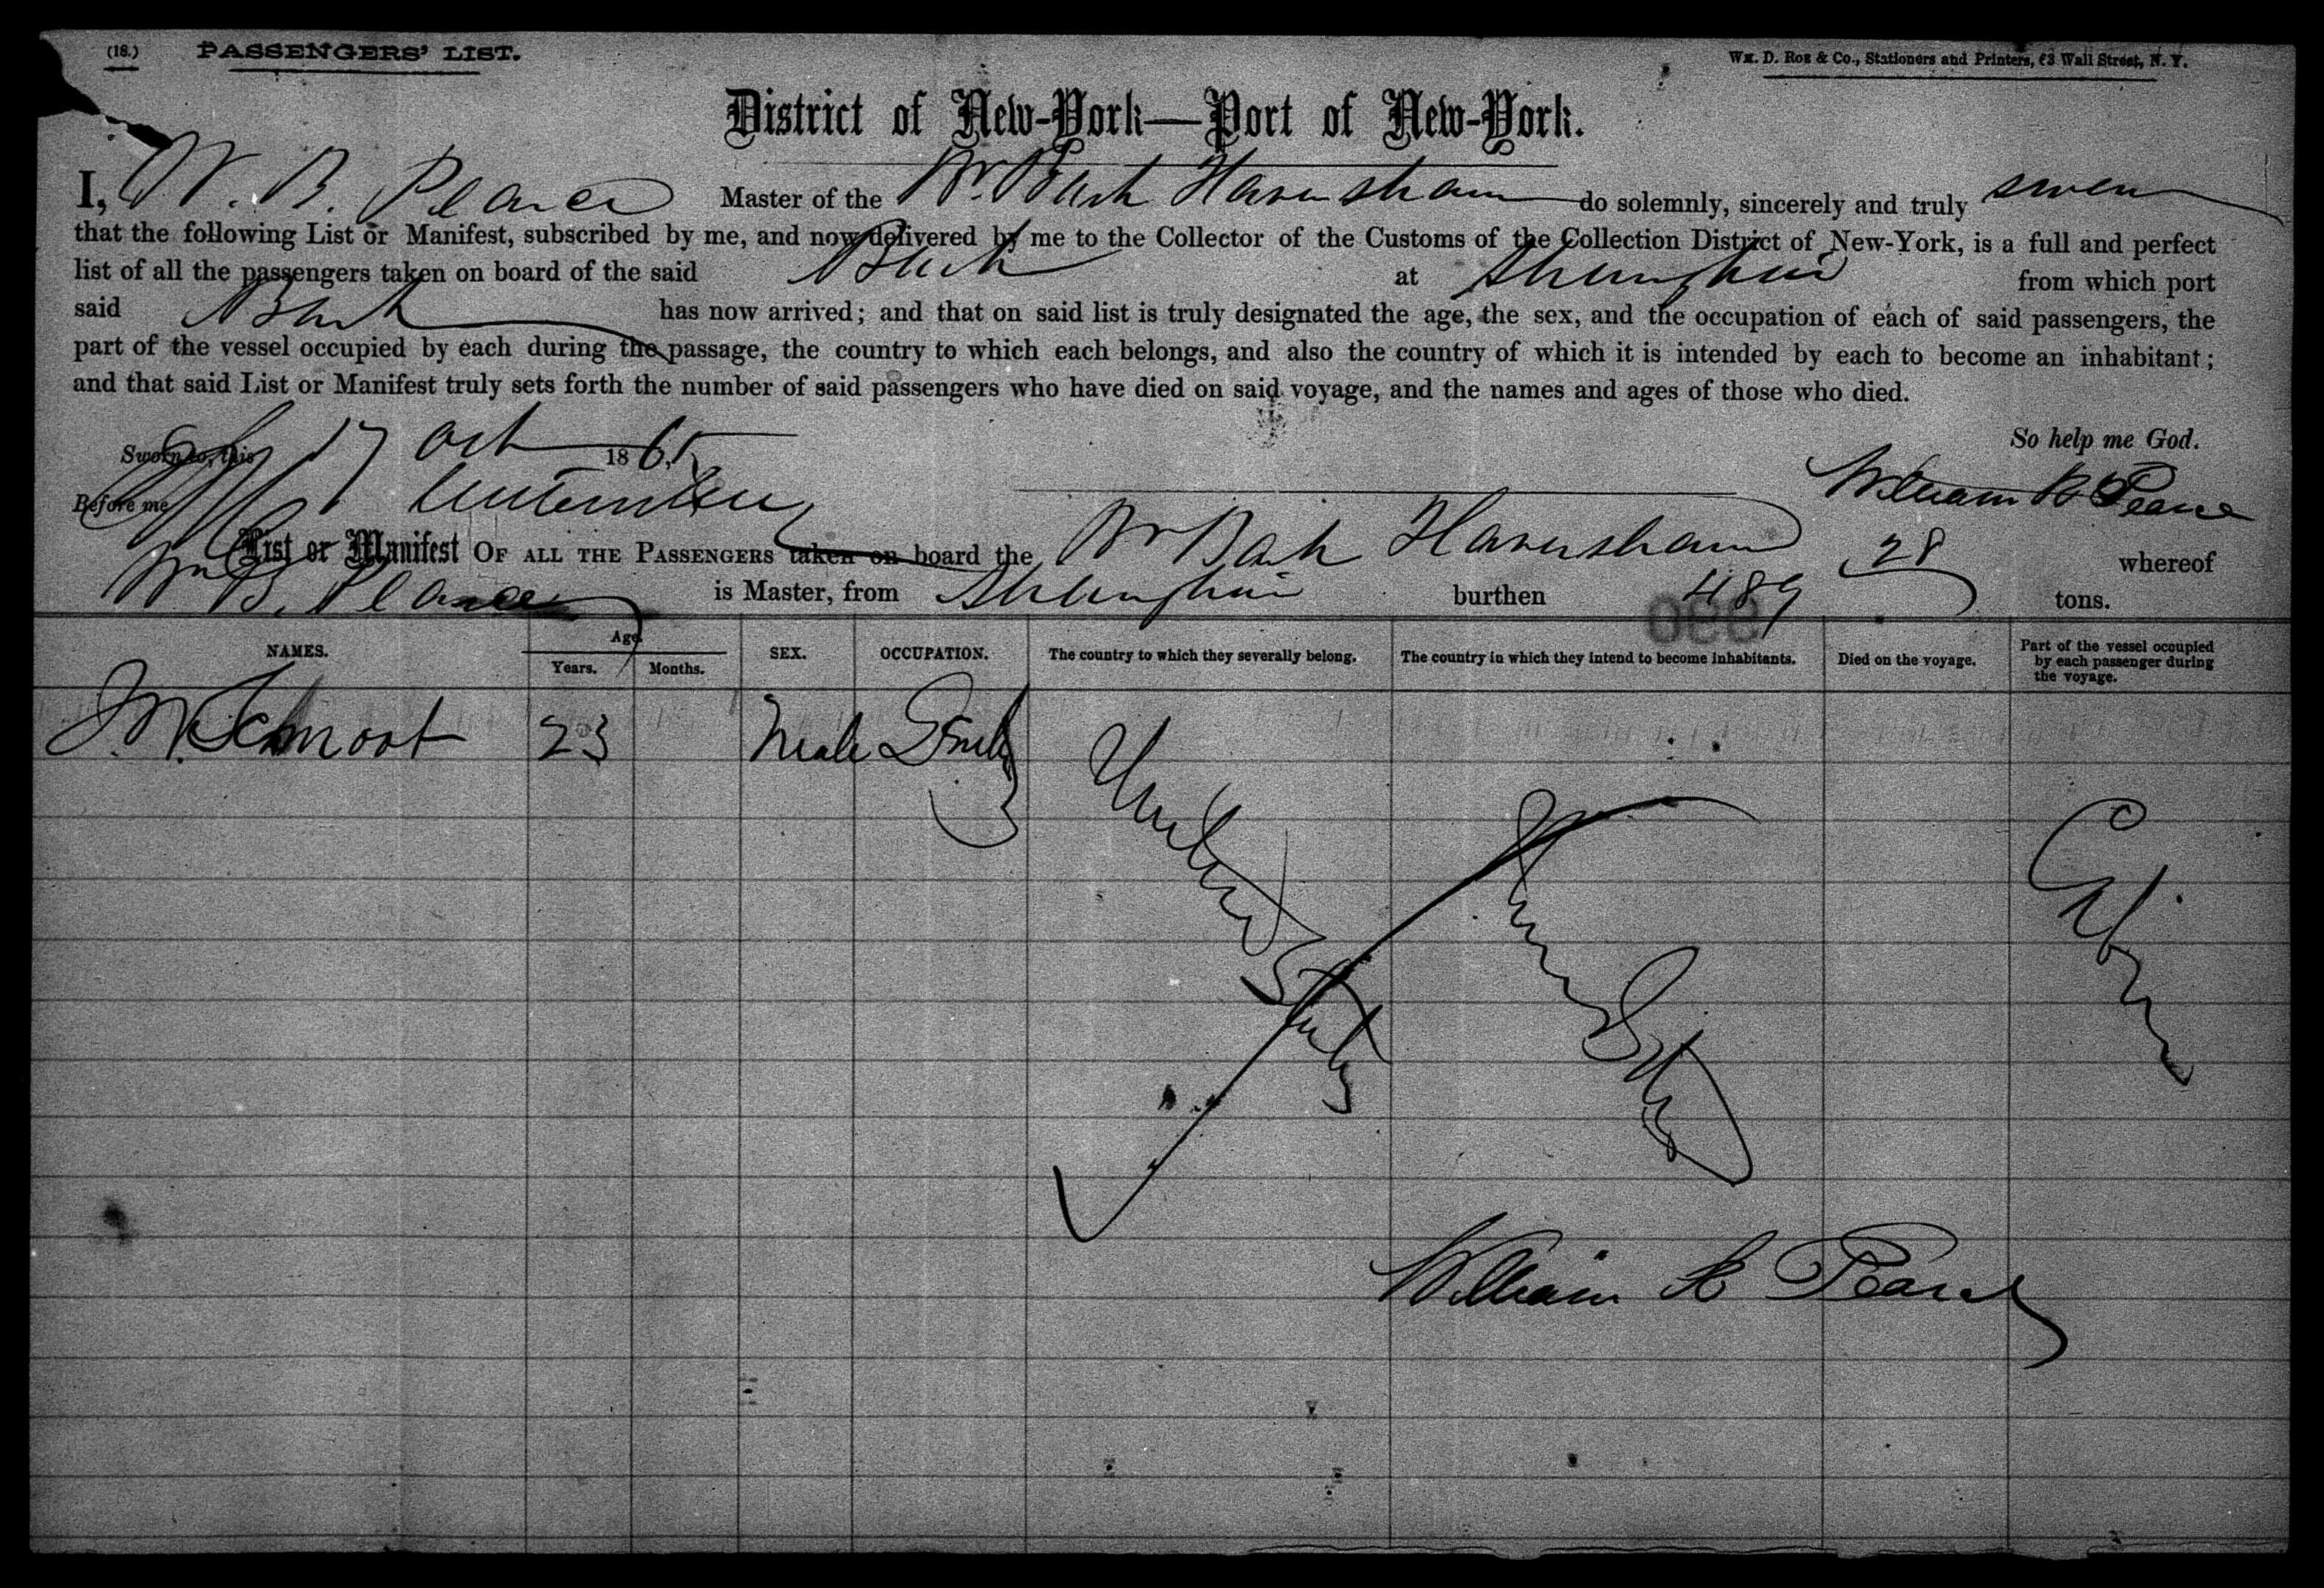 (18.) PASSENGERS' LIST. Wm. D. Roe & Co., Stationers and Printers, 63 Wall Street, N. Y.
District of New-York—Port of New-York.
I, W. B. Pearce Master of the Br Bark Haversham do solemnly, sincerely and truly swear
that the following List or Manifest, subscribed by me, and now delivered by me to the Collector of the Customs of the Collection District of New-York, is a full and perfect
list of all the passengers taken on board of the said Bark at Shanghai from which port
said Bark has now arrived; and that on said list is truly designated the age, the sex, and the occupation of each of said passengers, the
part of the vessel occupied by each during the passage, the country to which each belongs, and also the country of which it is intended by each to become an inhabitant;
and that said List or Manifest truly sets forth the number of said passengers who have died on said voyage, and the names and ages of those who died.
So help me God.
Sworn to, this 17 Oct 1865
William B Pearce
Before me
List or Manifest OF ALL THE PASSENGERS taken on board the Br Bark Haversham whereof
Wm B. Pearce is Master, from Shanghai burthen 489 28 tons.
NAMES. Age. Years. Months. SEX. OCCUPATION. The country to which they severally belong. The country in which they intend to become inhabitants. Died on the voyage. Part of the vessel occupied by each passenger during the voyage.
23 Male United States United States Cabin
William B Pearce